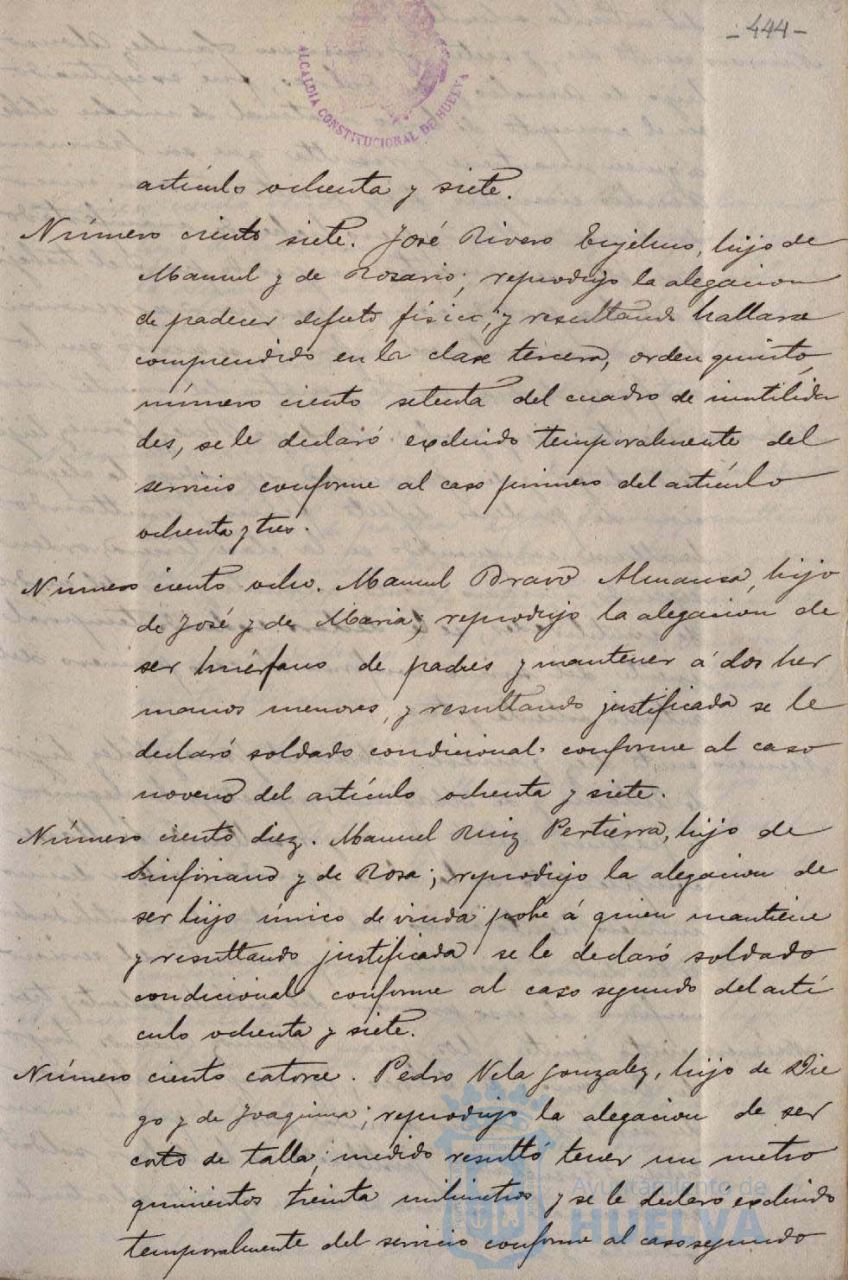 - 444 -
ALCALDIA CONSTITUCIONAL DE HUELVA
artículo ochenta y siete.
Número ciento siete. José Rivero, hijo de
Manuel y de Rosario; reprodujo la alegacion
de padecer defecto físico; y resultando hallarse
comprendido en la clase tercera, orden quinto,
número ciento setenta del cuadro de inutilida
des, se le declaró excluido temporalmente del
servicio conforme al caso primero del artículo
ochenta y tres.
Número ciento ocho. Manuel Bravo Almansa, hijo
de José y de Maria; reprodujo la alegacion de
ser huérfano de padres y mantener á dos her
manos menores, y resultando justificada se le
declaró soldado condicional conforme al caso
noveno del artículo ochenta y siete.
Número ciento diez. Manuel Ruiz Pertierra, hijo de
Sinforiano y de Rosa; reprodujo la alegacion de
ser hijo único de viuda pobre á quien mantiene
y resultando justificada se le declaró soldado
condicional conforme al caso segundo del artí
culo ochenta y siete.
Número ciento catorce. Pedro Vela Gonzalez, hijo de Die
go y de Joaquina; reprodujo la alegacion de ser
corto de talla; medido resultó tener un metro
quinientos treinta milimetros y se le declaró excluido
temporalmente del servicio conforme al caso segundo
Ayuntamiento de
HUELVA